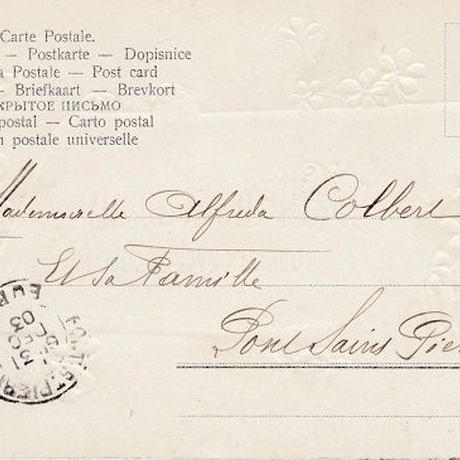 Carte Postale.
— Postkarte — Dopisnice
a Postale — Post card
— Briefkaart — Brevkort
КРЫТОЕ ПИСЬМО
postal — Carto postal
postale universelle
Mademoiselle Alfreda Colbert
Et Sa Famille
Pont Saint Pier
PONT-ST-PIERRE
31
DEC
03
EUR